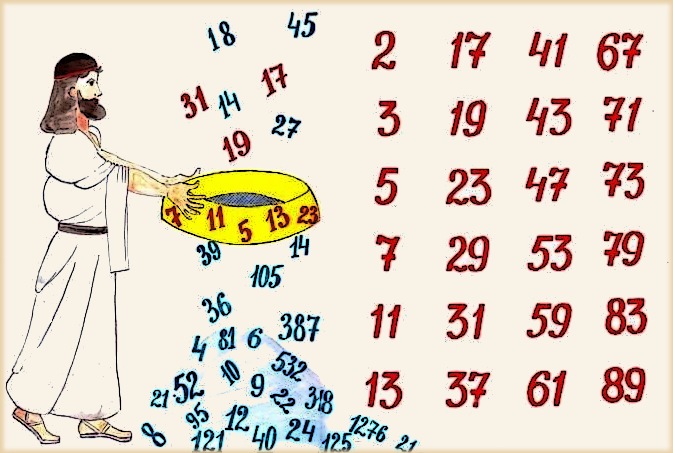 18 45
31 14 17
19 27
7 11 5 13 23
39 14
105
36
4 81 6 387
532
21 52 10 9 22 318
8 95 12 1276
121 40 24 125 21
2 17 41 67
3 19 43 71
5 23 47 73
7 29 53 79
11 31 59 83
13 37 61 89